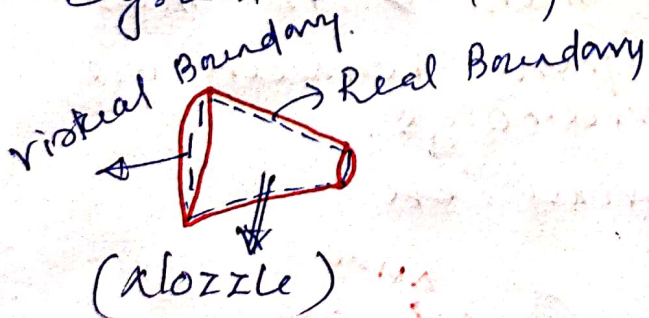 Virtual Boundary.
Real Boundary
(Nozzle)